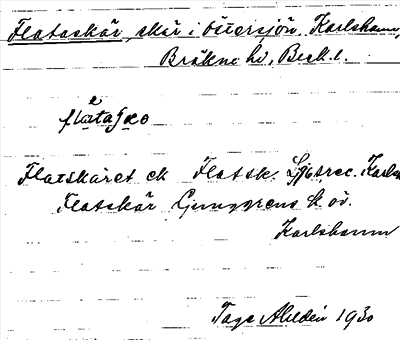 Flataskär, skär i Östersjön, Karlshamn,
Bräkne hd, Blek. l.
Flatskäret ek Flatsk. Sjötrec. Karls
Flatskär Ljunggrens k. öv.
Karlshamn
Tage Ahldén 1930